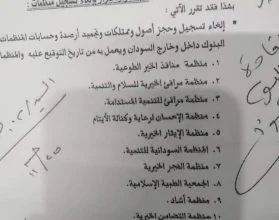 بهذا فقد تقرر الآتي :
إلغاء تسجيل وحجز أصول وممتلكات وتجميد أرصدة وحسابات المنظمات
البنوك داخل وخارج السودان ويعمل به من تاريخ التوقيع عليه والمنظمات
١. منظمة منافذ الخير الطوعية.
٢. منظمة مرافئ الخيرية للسلام والتنمية.
٣. منظمة مرافئ للتنمية المستدامة.
٤. منظمة الإحسان لرعاية وكفالة الأيتام
٥. منظمة الإيثار الخيرية.
٦. المنظمة السودانية للتنمية.
٧. منظمة الفجر الخيرية
٨. الجمعية الطبية الإسلامية.
٩. منظمة أشاك.
منظمة التضامن الخيرية